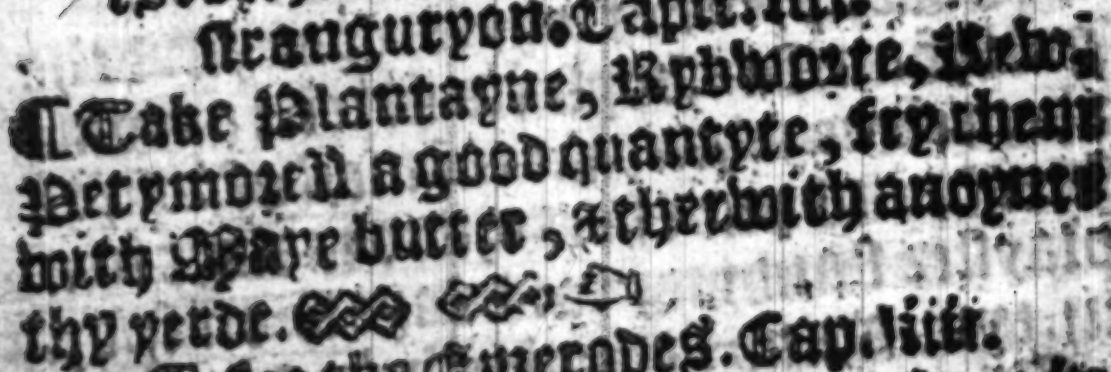 stranguryon. Capit. liii.
¶ Take Plantayne, Rybworte, Rew,
Petymorell a good quantyte, fry them
with Maye butter, & therwith anoynte
thy yerde.
the Emerodes. Cap. liiii.